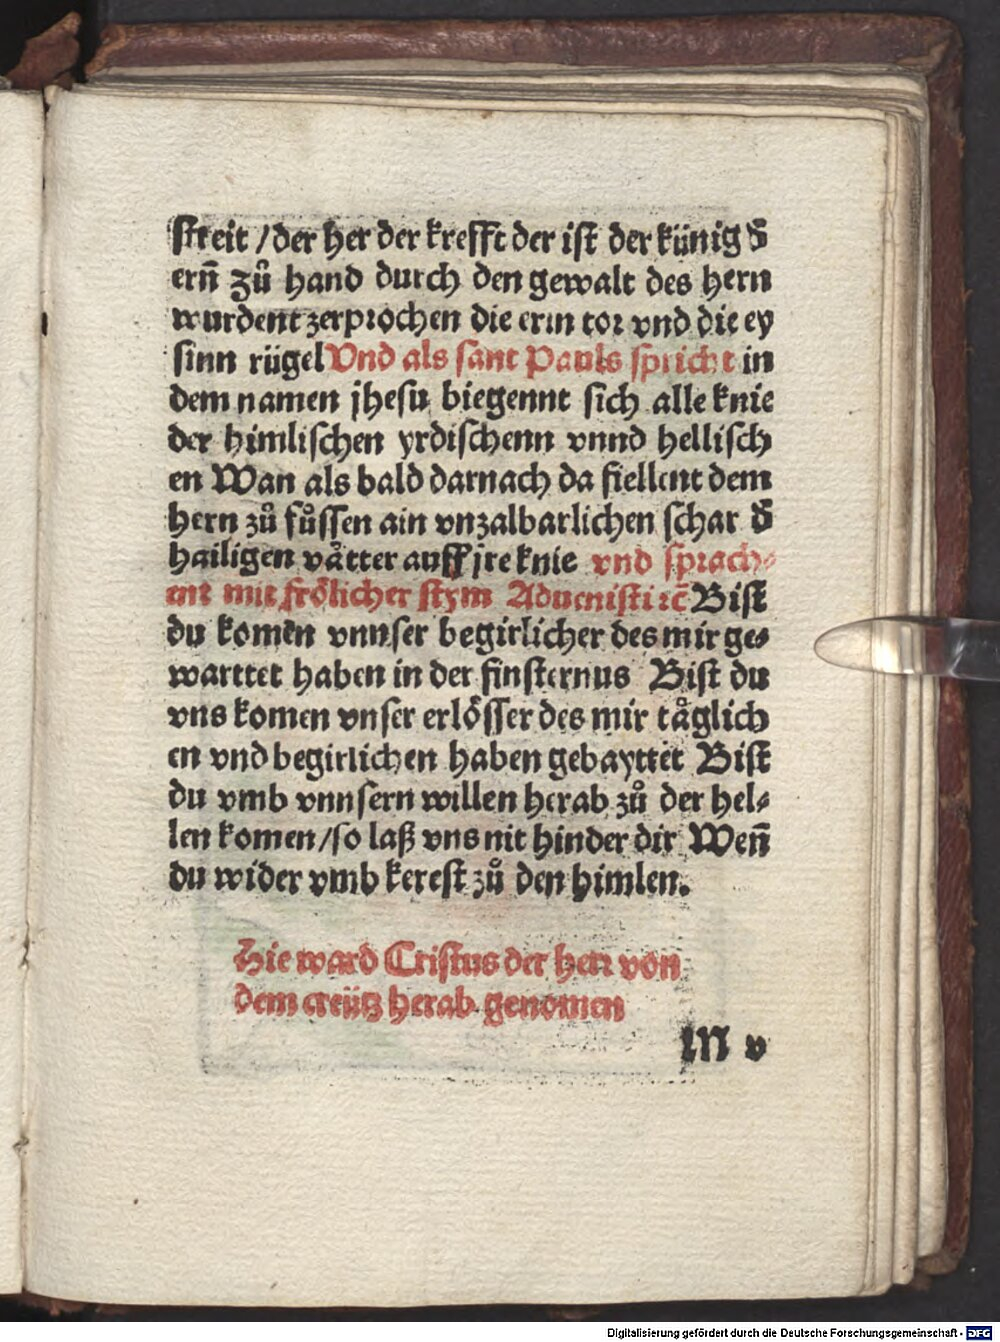 streit / der her der krefft der ist der künig d̄
ern̄ zů hand durch den gewalt des hern
wurdent zerprochen die erin tor vnd die ey
sinn rügel Vnd als sant Pauls spricht in
dem namen jhesu biegennt sich alle knie
der himlischen yrdischenn vnnd hellisch
en Wan als bald darnach da fiellent dem
hern zů fůssen ain vnzalbarlichen schar d̄
hailigen våtter auff jre knie vnd sprach⸗
ent mit frölicher stym Aduenisti ꝛc̄ Bist
du komen vnnser begirlicher des mir ge⸗
warttet haben in der finsternus Bist du
vns komen vnser erlösser des mir tåglich
en vnd begirlichen haben gebayttet Bist
du vmb vnnsern willen herab zů der hel⸗
len komen / so laß vns nit hinder dir Wen̄
du wider vmb kerest zů den himlen.
Hie ward Cristus der herr von
dem creütz herab genomen
M v
Digitalisierung gefördert durch die Deutsche Forschungsgemeinschaft - DFG